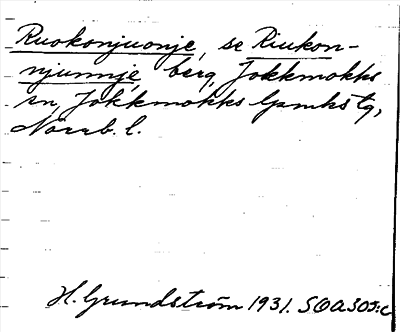 Ruokonjuonje, se Riukon-
njunnje, berg, Jokkmokks
sn, Jokkmokks lpmks tg,
Norrb. l.
H. Grundström 1931. SOA 305:c